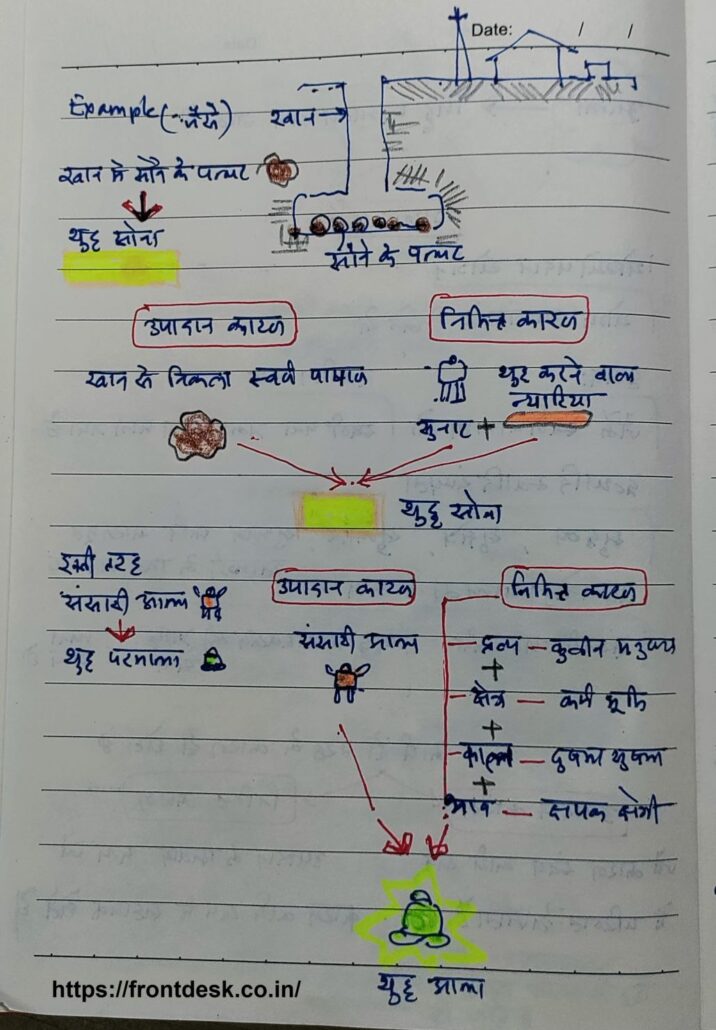 Date: / /
Example (-जैसे)
खान →
खान मे सोने के पत्थर
शुद्ध सोना
सोने के पत्थर
उपादान कारण
निमित्त कारण
खान से निकला स्वर्ण पाषाण
शुद्ध करने वाला
न्यारिया
सुनार +
शुद्ध सोना
इसी तरह
संसारी आत्मा
शुद्ध परमात्मा
उपादान कारण
निमित्त कारण
संसारी आत्मा
द्रव्य — कुलीन मनुष्य
+
क्षेत्र — कर्म भूमि
+
काल — दुषमा सुषमा
+
भाव — क्षपक श्रेणी
शुद्ध आत्मा
https://frontdesk.co.in/